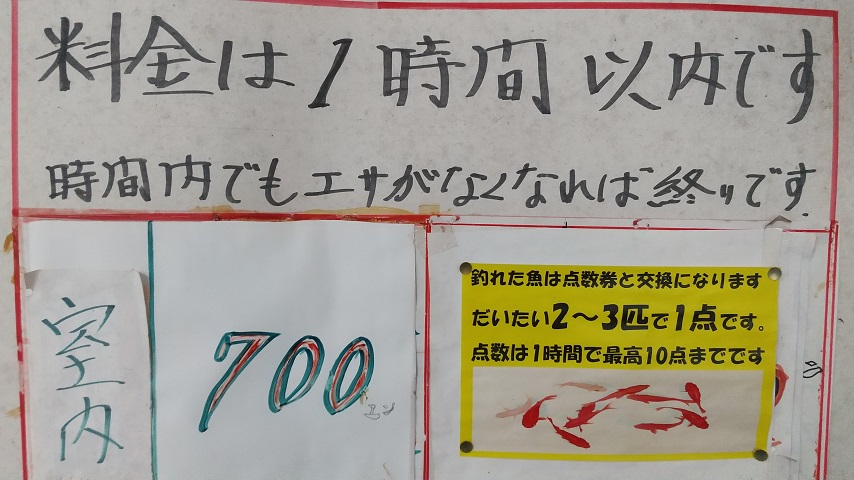 料金は1時間以内です
時間内でもエサがなくなれば終りです.
室内
700
エン
釣れた魚は点数券と交換になります
だいたい2～3匹で1点です。
点数は1時間で最高10点までです